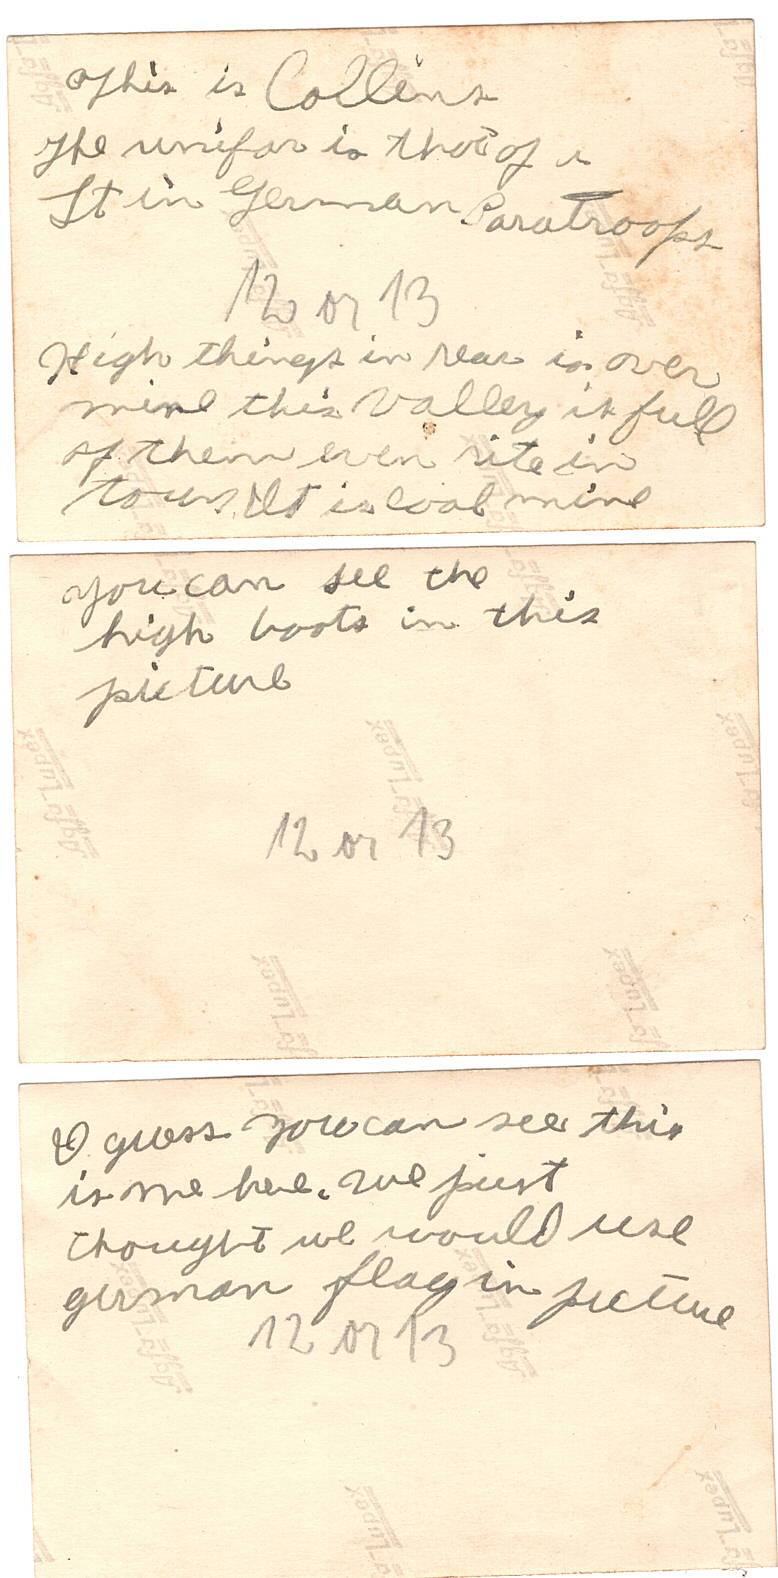 This is Collins
The unifor is that of a
Lt in German Paratroops
12 or 13
High things in rear is over
mine this valley is full
of them even rite in
town. It is coal mine
you can see the
high boots in this
picture
12 or 13
I guess you can see this
is me here. we just
thought we would use
german flag in picture
12 or 13
Agfa-Lupex